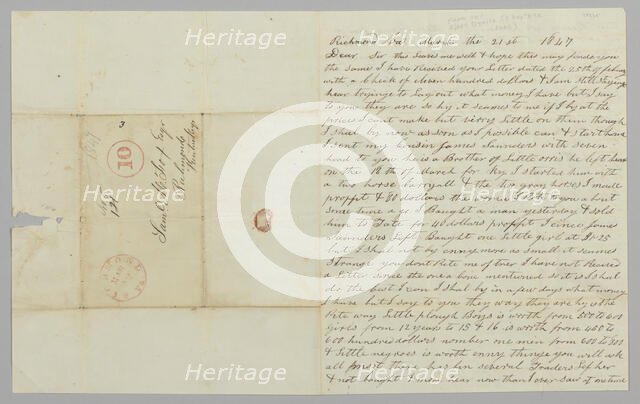 Richmond Va March the 21st 1847
Dear Sir this leaves me well & hope this may find you
the same I have Received your Letter dated the 25th of
with a Check of eleven hundred dollars & I am Still
hear trying to Lay out what money I have but I say
to you they are so hy it seames to me if I by at the
prices I cant make but verry Little on them though
I shal by now as soon as I possible can & start home
I sent my cousin James Saunders with seven
head to you he is a Brother of Little he left hear
on the 18th of March for Ky I started him with
a two horse carryall & the two gray horses I made
proffit & 80 dollars
since I Baught a man yesterday & sold
him to Tate for 40 dollars proffit I since James
Saunders Left Baught one Little girl at $
but I shal not by enny more as small it seames
Strange you dont Rite me I have not Received
a Letter since the one above mentioned so it is I shal
do the best I can I shal by in a few days what money
I have but I say to you they way they are hy is the
Rite way Little plough Boys is worth from 500 to 600
girls from 12 years to 15 & 16 is worth from 400 to
600 hundred dollars number one men from 600 to 700
& Little negroes is worth enny thinge you will ask
all most thare has bin several Traders Left her
& not baught & more hear now than I ever saw at one time
3
10
1847
Saml
Richmonds
Kentucky
RICHMOND
MAR
Va.
heritage
Heritage
Images